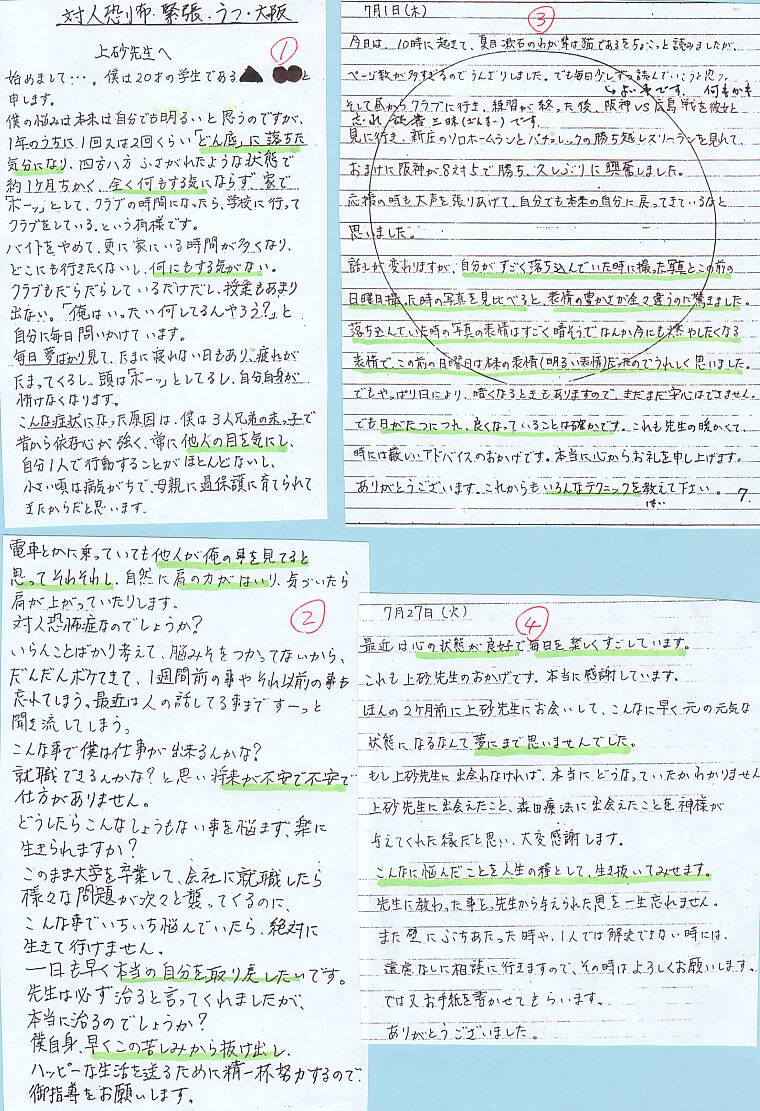 対人恐怖・緊張・うつ・大阪
①
上砂先生へ
始めまして…。僕は20才の学生である▲ ●●と
申します。
僕の悩みは本来は自分でも明るいと思うのですが、
1年のうちに1回又は2回くらい「どん底」に落ちた
気分になり、四方八方ふさがれたような状態で
約1ヶ月ちかく、全く何もする気にならず、家で
「ボーッ」として、クラブの時間になったら、学校に行って
クラブをしている。という有様です。
バイトをやめて、更に家にいる時間が多くなり、
どこにも行きたくないし、何にもする気がない。
クラブもだらだらしているだけだし、授業もあまり
出ない。「俺はいったい何してるんやろう?」と
自分に毎日問いかけています。
毎日夢ばかり見て、たまに寝れない日もあり、疲れが
たまってくるし、頭は「ボーッ」としてるし、自分自身が
情けなくなります。
こんな症状になった原因は、僕は3人兄弟の末っ子で
昔から依存心が強く、常に他人の目を気にし、
自分1人で行動することがほとんどないし、
小さい頃は病気がちで、母親に過保護に育てられて
きたからだと思います。
②
電車とかに乗っていても他人が俺の事を見てると
思ってそわそわし、自然に肩の力がはいり、気づいたら
肩が上がっていたりします。
対人恐怖症なのでしょうか?
いらんことばかり考えて、脳みそをつかってないから、
だんだんボケてきて、1週間前の事やそれ以前の事も
忘れてしまう。最近は人の話してる事まですーっと
聞き流してしまう。
こんな事で僕は仕事が出来るんかな?
就職できるんかな?と思い将来が不安で不安で
仕方がありません。
どうしたらこんなしょうもない事を悩まず、楽に
生きられますか?
このまま大学を卒業して、会社に就職したら
様々な問題が次々と襲ってくるのに、
こんな事でいちいち悩んでいたら、絶対に
生きて行けません。
一日も早く本当の自分を取り戻したいです。
先生は必ず治ると言ってくれましたが、
本当に治るのでしょうか?
僕自身、早くこの苦しみから抜け出し、
ハッピーな生活を送るために精一杯努力するので、
御指導をお願いします。
7月1日(木)
③
今日は、10時に起きて、夏目漱石のわが輩は猫であるをちょこっと読みましたが、
ページ数が多すぎるのでうんざりしました。でも毎日少しずつ読んでいこうと思う。
よい事です。 何もかも
そして昼からクラブに行き、練習が終った後、阪神VS広島戦を彼女と
忘れ 三昧(ざんまい)です。
見に行き、新庄のソロホームランとパチョレックの勝ち越しスリーランを見れて、
おまけに阪神が8対5で勝ち、久しぶりに興奮しました。
応援の時も大声を張りあげて、自分でも本来の自分に戻ってきているなと
思いました。
話しが変わりますが、自分がすごく落ち込んでいた時に撮った写真とこの前の
日曜日撮った時の写真を見比べると、表情の豊かさが全々違うのに驚きました。
落ち込んでいた時の写真の表情はすごく暗そうで、なんか今にも燃やしたくなる
表情で、この前の日曜日は本来の表情(明るい表情)だったのでうれしく思いました。
でもやっぱり日により、暗くなるときもありますので、まだまだ安心はできません。
でも日がたつにつれ、良くなっていることは確かです。これも先生の暖かくて、
時には厳しいアドバイスのおかげです。本当に心からお礼を申し上げます。
ありがとうございます。これからもいろんなテクニックを教えて下さい。 7.
はい
7月27日(火)
④
最近は心の状態が良好で毎日を楽しくすごしています。
これも上砂先生のおかげです。本当に感謝しています。
ほんの2ヶ月前に上砂先生にお会いして、こんなに早く元の元気な
状態になるなんて夢にまで思いませんでした。
もし上砂先生に出会わなければ、本当にどうなっていたかわかりません
上砂先生に出会えたこと、森田療法に出会えたことを神様が
与えてくれた縁だと思い、大変感謝します。
こんなに悩んだことを人生の糧として、生き抜いてみせます。
先生に教わった事と、先生から与えられた恩を一生忘れません。
また壁にぶちあたった時や、1人では解決できない時には、
遠慮なしに相談に行きますので、その時はよろしくお願いします。
では又お手紙を書かせてもらいます。
ありがとうございました。